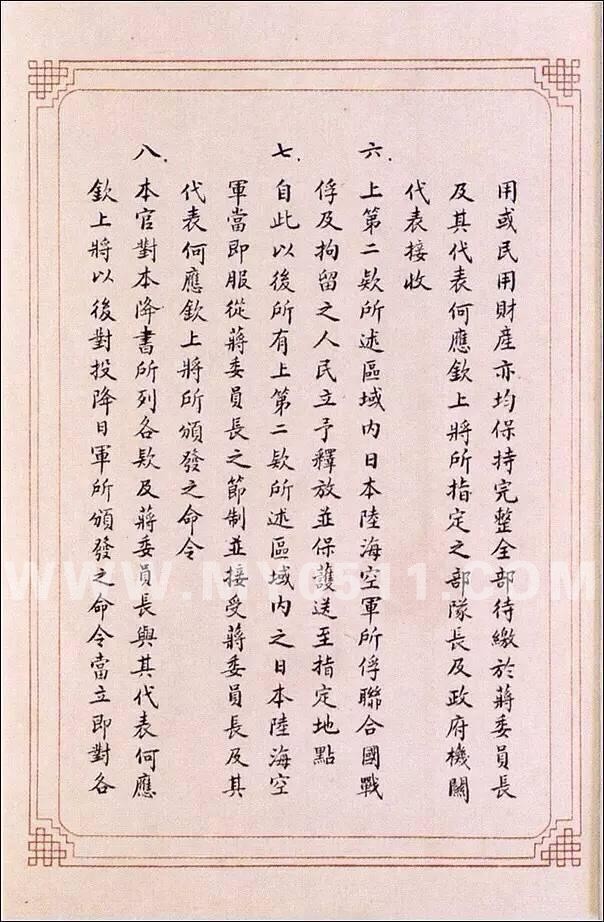 用或民用財産亦均保持完整全部待繳於蔣委員長
及其代表何應欽上將所指定之部隊長及政府機關
代表接收
六.上第二欵所述區域內日本陸海空軍所俘聯合國戰
俘及拘留之人民立予釋放並保護送至指定地點
七.自此以後所有上第二欵所述區域內之日本陸海空
軍當即服從蔣委員長之節制並接受蔣委員長及其
代表何應欽上將所頒發之命令
八.本官對本降書所列各欵及蔣委員長與其代表何應
欽上將以後對投降日軍所頒發之命令當立即對各
WWW.MY0511.COM